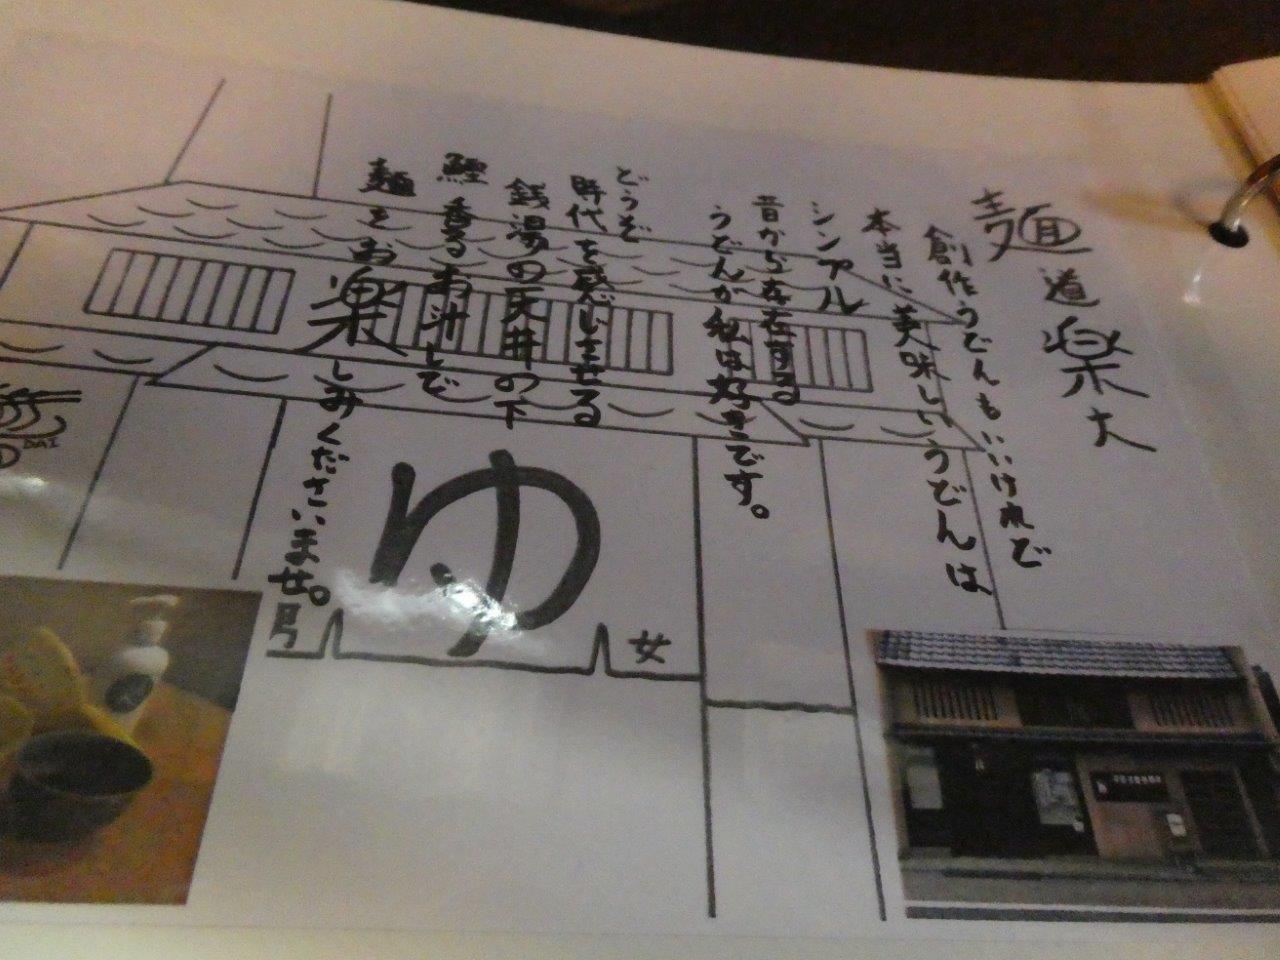 麺道楽大
創作うどんもいいけれど
本当に美味しいうどんは
シンプル
昔から存在する
うどんが私は好きです。
どうぞ
時代を感じさせる
銭湯の天井の下
鰹香るお汁しで
麺をお楽しみくださいませ。
ゆ
男
女
DAI